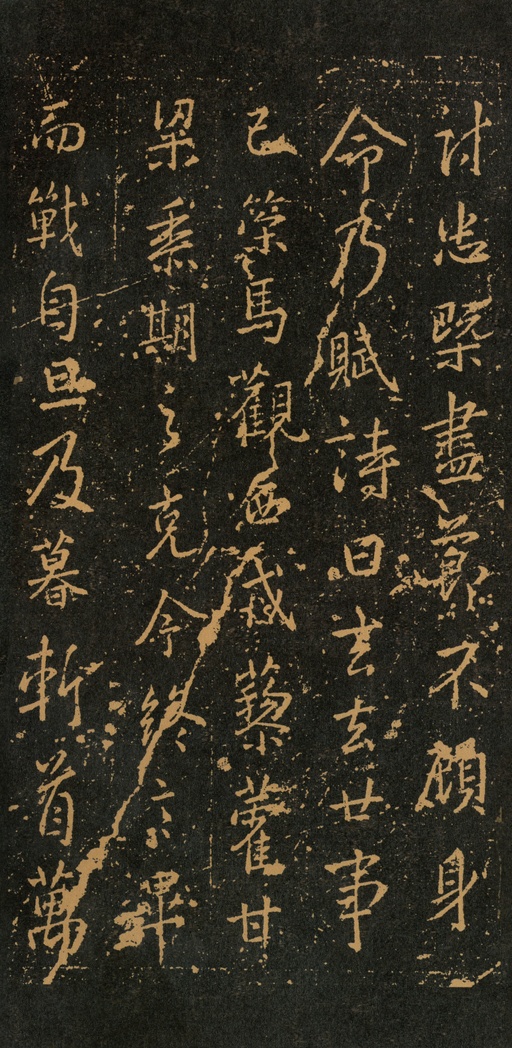 討忠槩盡節不顧身
命乃賦詩曰去去世事
已策馬觀西戎藜藿甘
梁黍期之克令終言畢
而戰自旦及暮斬首萬